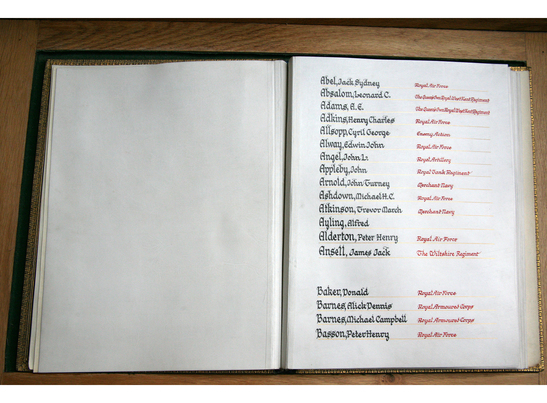 Abel, Jack Sydney Royal Air Force
Absalom, Leonard C. The Queen's Own Royal West Kent Regiment
Adams, A. E. The Queen's Own Royal West Kent Regiment
Adkins, Henry Charles Royal Air Force
Allsopp, Cyril George Enemy Action
Alway, Edwin John Royal Air Force
Angel, John L. Royal Artillery
Appleby, John Royal Tank Regiment
Arnold, John Turney Merchant Navy
Ashdown, Michael H.C. Royal Air Force
Atkinson, Trevor March Merchant Navy
Ayling, Alfred
Alderton, Peter Henry Royal Air Force
Ansell, James Jack The Wiltshire Regiment
Baker, Donald Royal Air Force
Barnes, Alick Dennis Royal Armoured Corps
Barnes, Michael Campbell Royal Armoured Corps
Basson, Peter Henry Royal Air Force